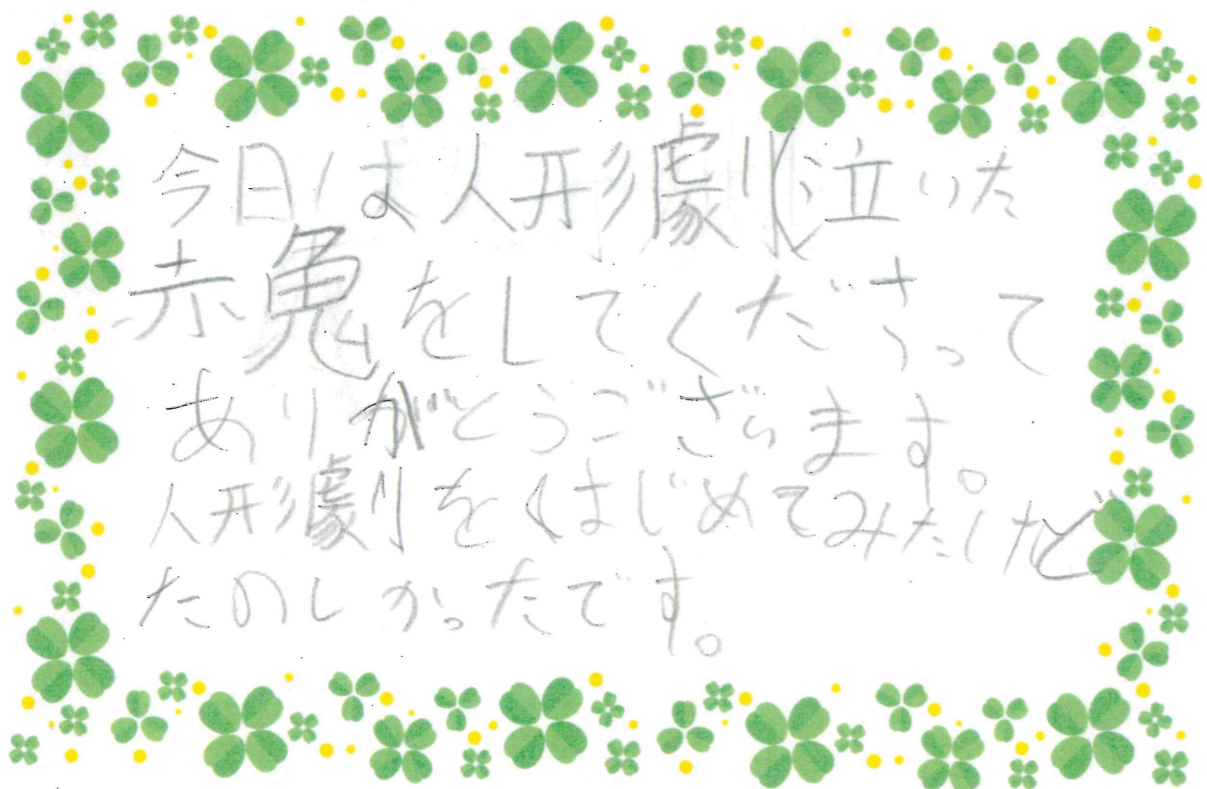 今日は人形劇泣いた
赤鬼をしてくださって
ありがとうございます。
人形劇をはじめてみたけど
たのしかったです。